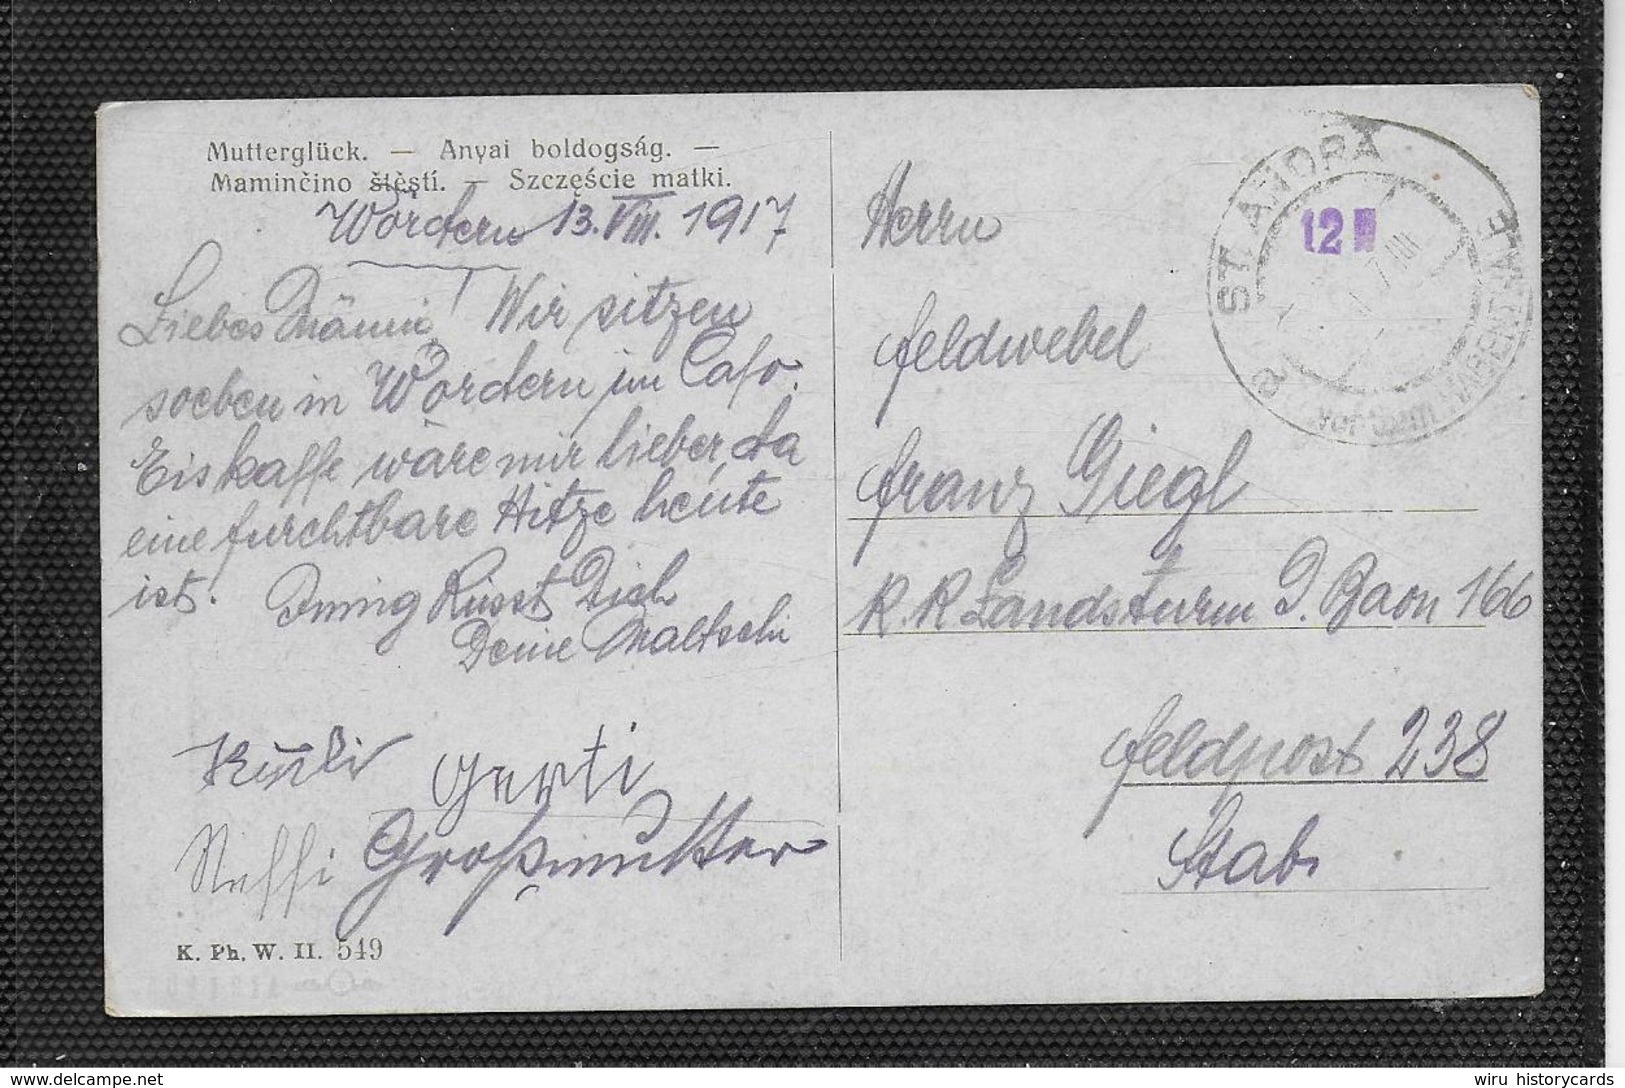 Mutterglück. — Anyai boldogság. —
Maminčino štěstí. — Szczęście matki.
Wördern 13. VIII. 1917
Liebes Männi! Wir sitzen
soeben in Wördern im Cafe.
Eiskaffe wäre mir lieber, da
eine furchtbare Hitze heute
ist. Innig Küsst Dich
Deine Maltschi
Gerti
Steffi Großmutter
K. Ph. W. II. 549
Herrn
Feldwebel
Franz Giegl
K. K. Landsturm I. Baon 166
Feldpost 238
Stab.
ST. ANDRÄ
vor dem HAGENTHALE
12
wiru historycards